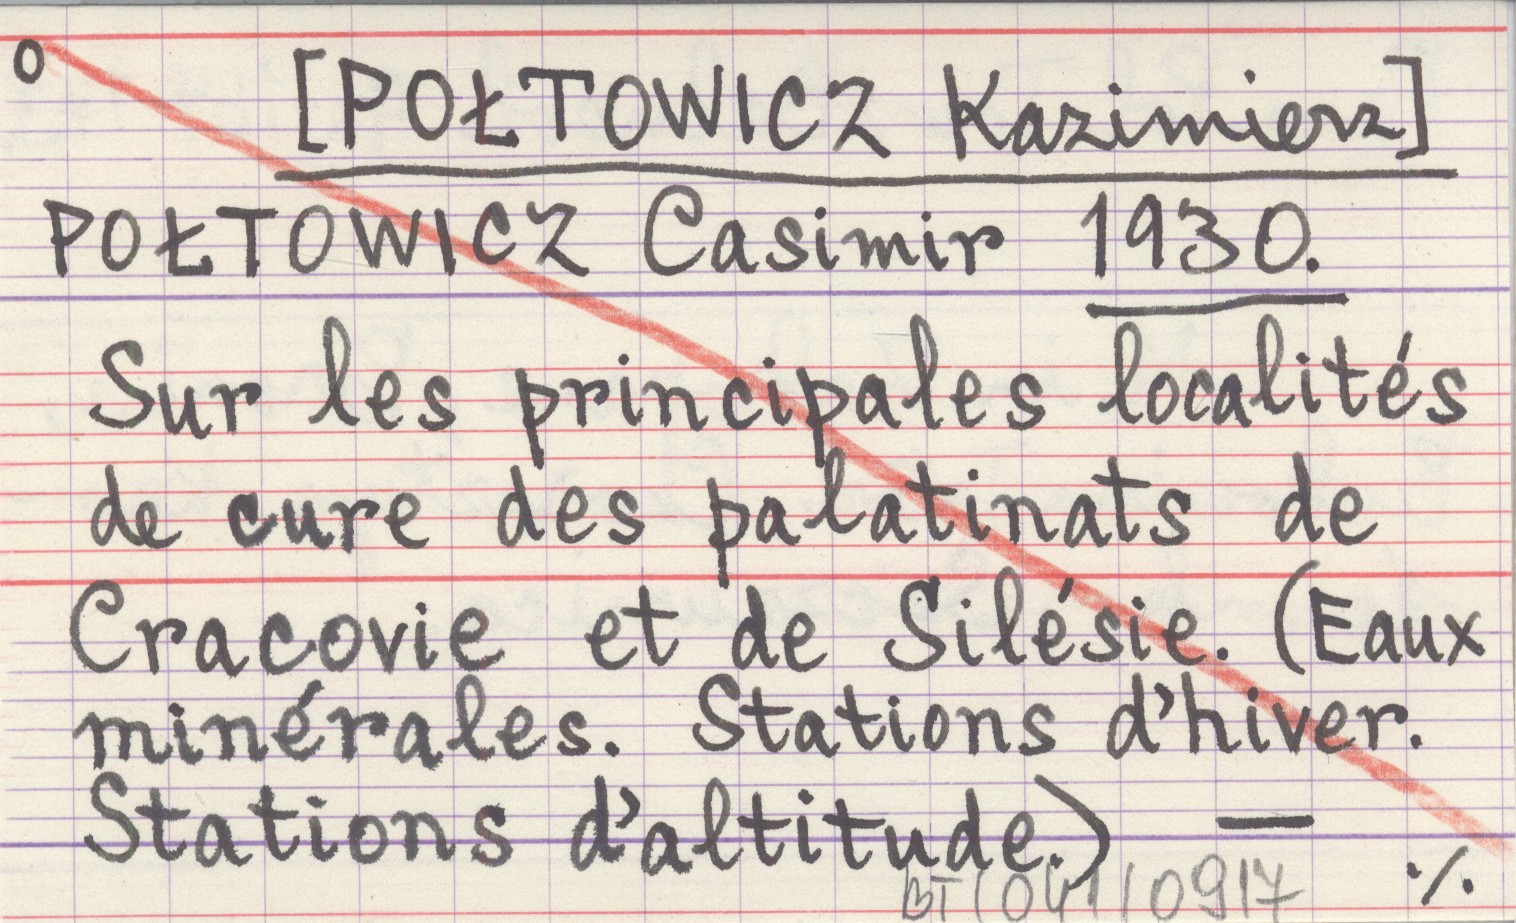 o
[POŁTOWICZ Kazimierz]
POŁTOWICZ Casimir 1930.
Sur les principales localités
de cure des palatinats de
Cracovie et de Silésie. (Eaux
minérales. Stations d'hiver.
Stations d'altitude.) —
BT/041/0917 ./.